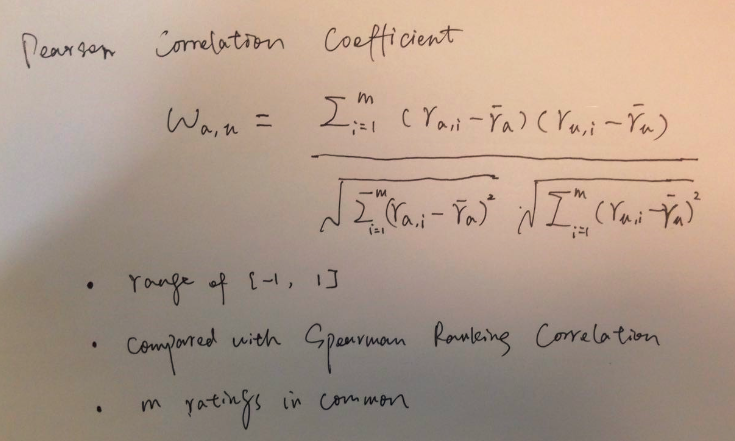 Pearson Correlation Coefficient
w_{a,u} = \frac{\sum_{i=1}^{m} (r_{a,i} - \bar{r}_a)(r_{u,i} - \bar{r}_u)}{\sqrt{\sum_{i=1}^{m} (r_{a,i} - \bar{r}_a)^2} \sqrt{\sum_{i=1}^{m} (r_{u,i} - \bar{r}_u)^2}}
• range of [-1, 1]
• compared with Spearman Ranking Correlation
• m ratings in common